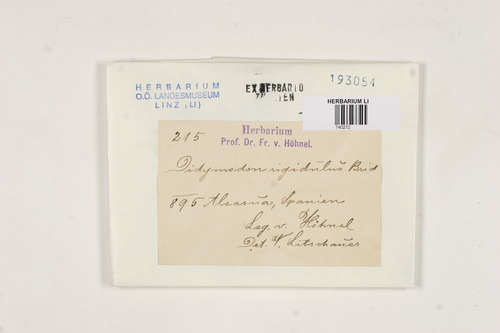 HERBARIUM
O.Ö. LANDESMUSEUM
LINZ (LI)
EX HERBARIO
193054
HERBARIUM LI
740272
215
Herbarium
Prof. Dr. Fr. v. Höhnel.
Didymodon rigidulus Brid
895 Alsasua, Spanien
Lsg. v. Höhnel
Det. V. Litschauer